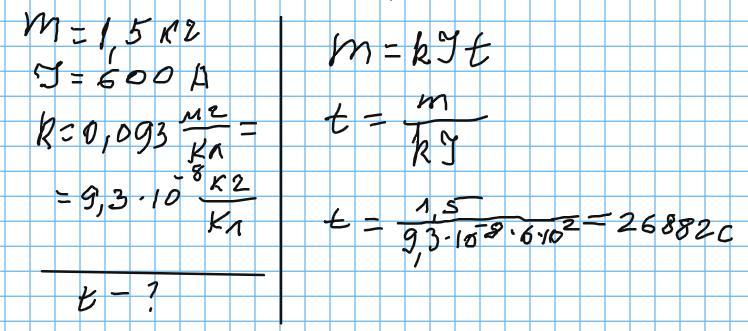 m = 1,5 кг
I = 600 А
k = 0,093 мг/Кл =
= 9,3 · 10⁻⁸ кг/Кл
t - ?
m = kIt
t = m/kI
t = 1,5/9,3·10⁻⁸·6·10² = 26882 с